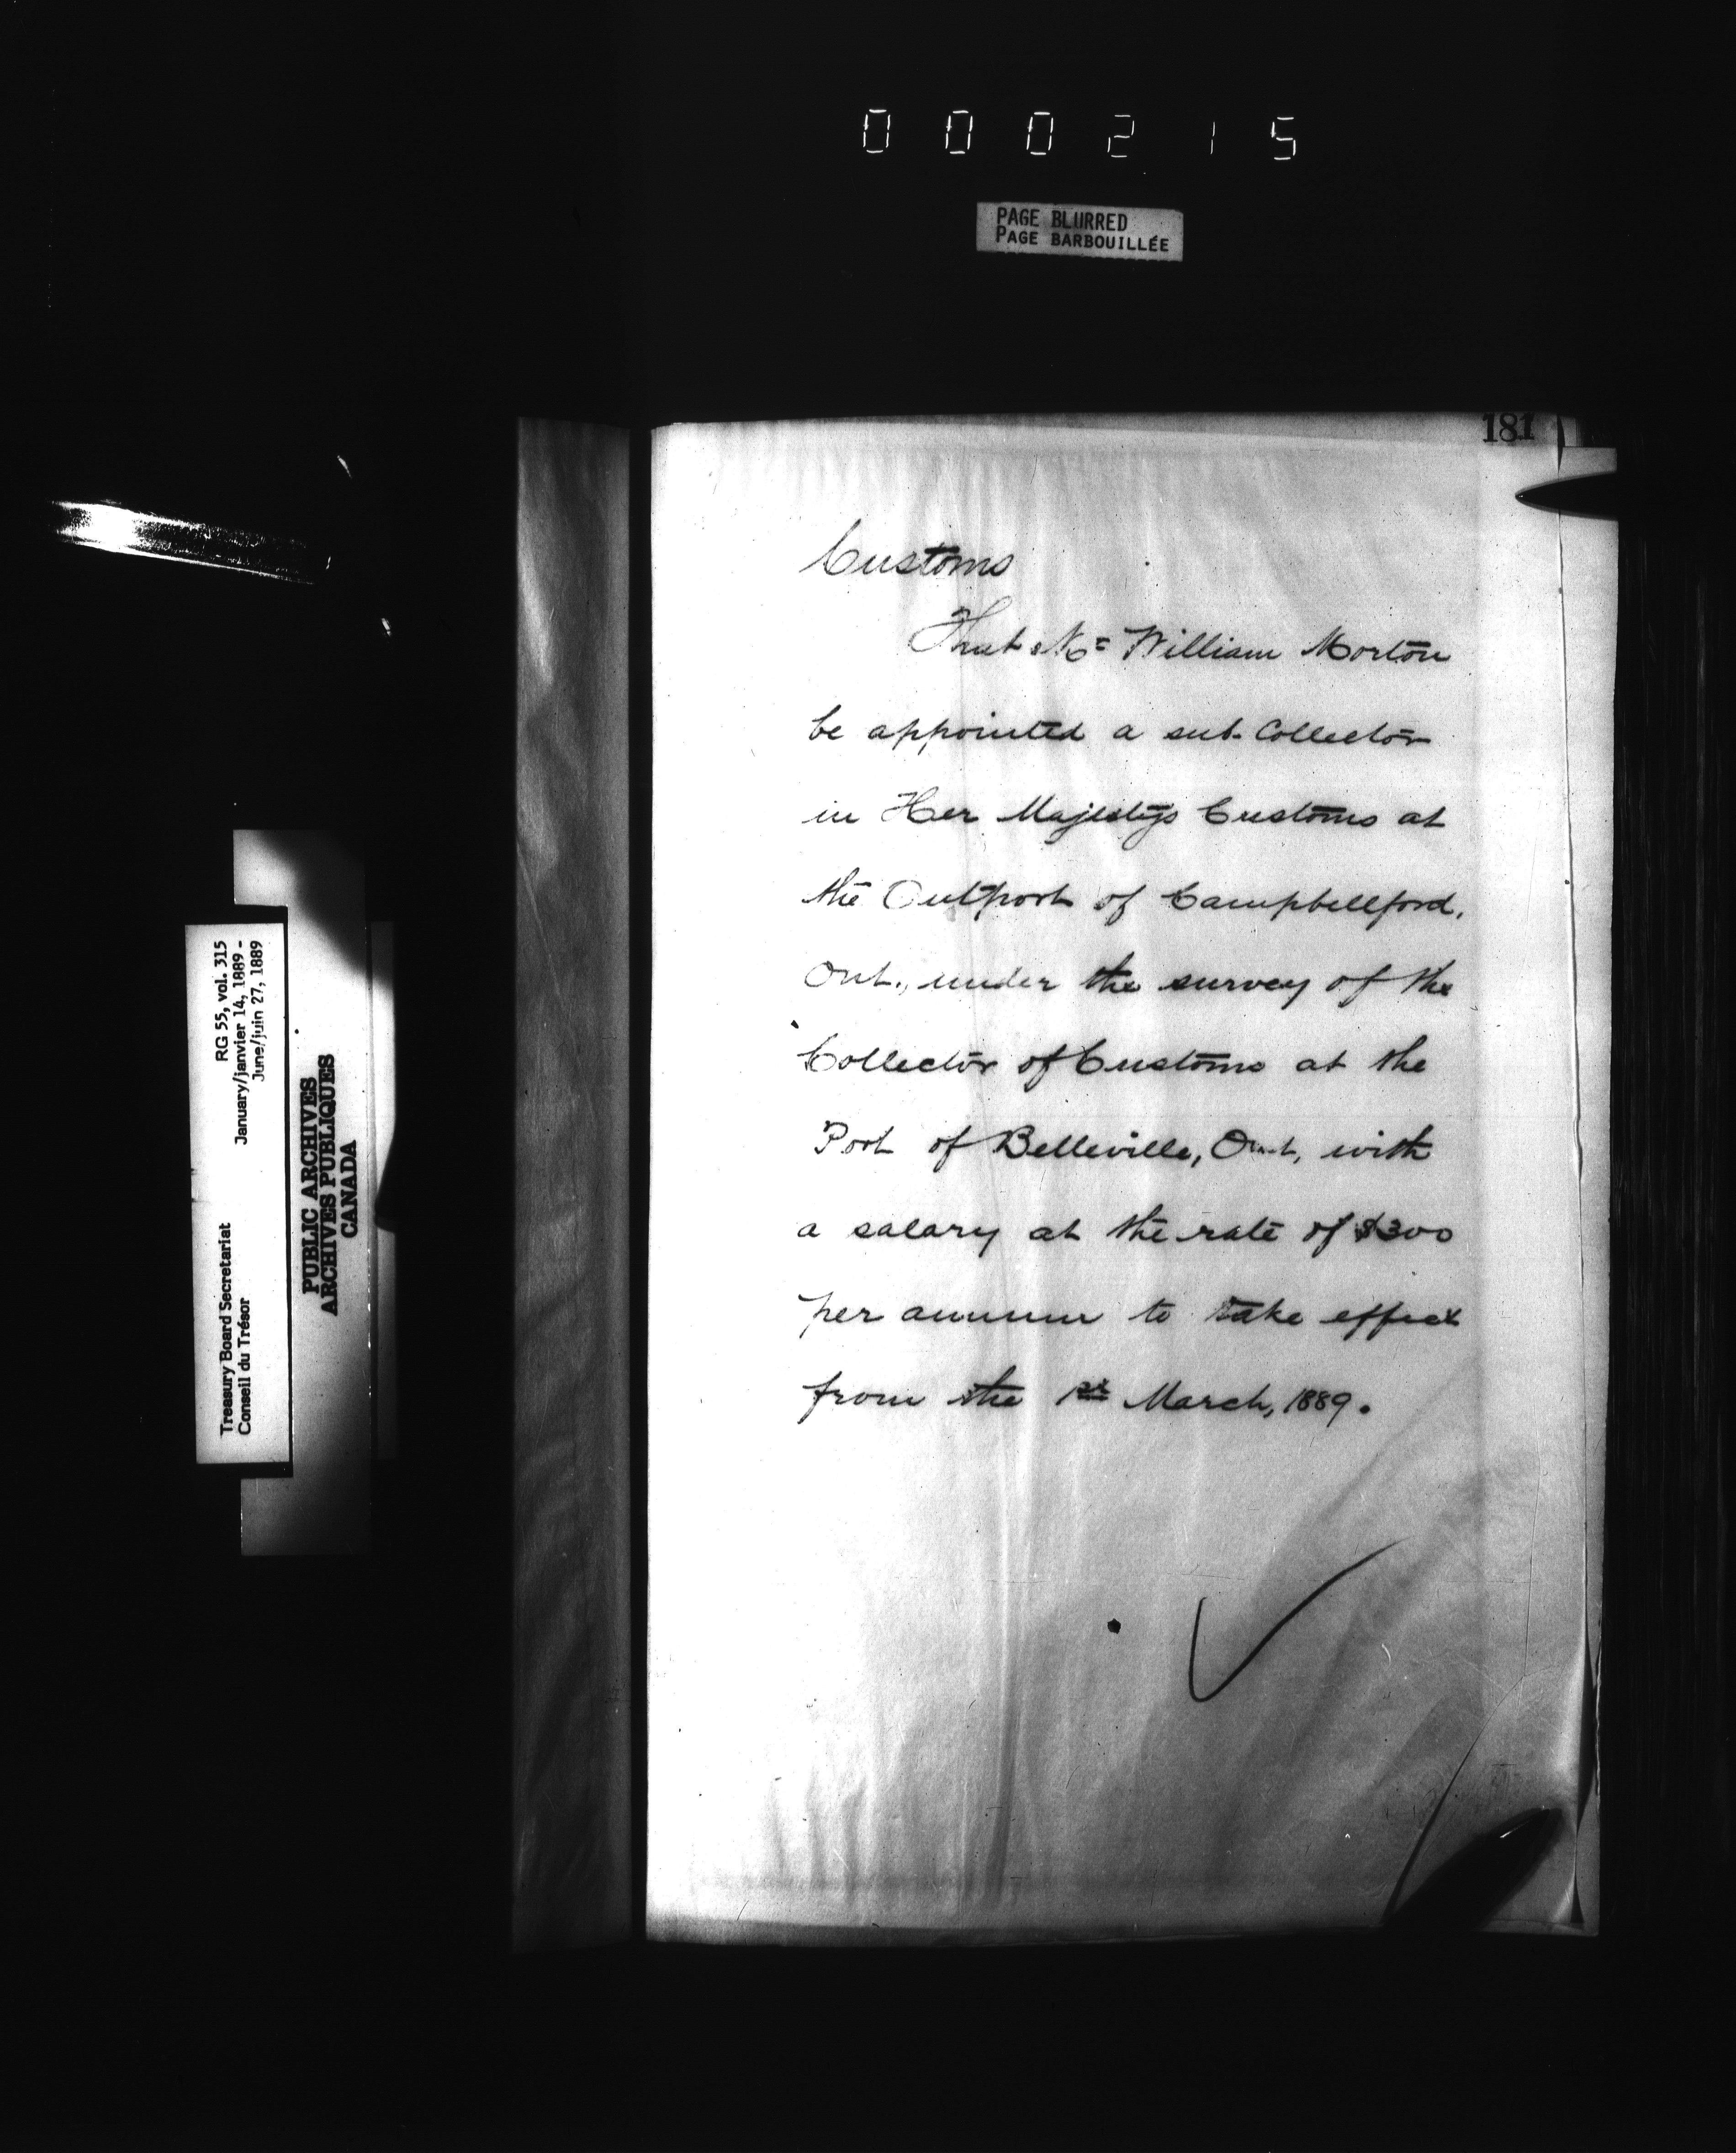 000215
PAGE BLURRED
PAGE BARBOUILLÉE
181
Customs
That Mr William Morton
be appointed a sub-Collector
in Her Majestys Customs at
the Outport of Campbellford,
Ont., under the survey of the
Collector of Customs at the
Port of Belleville, Ont, with
a salary at the rate of $300
per annum to take effect
from the 1st March, 1889.
RG 55, vol. 315
January/janvier 14, 1889 -
June/juin 27, 1889
Treasury Board Secretariat
Conseil du Trésor
PUBLIC ARCHIVES
ARCHIVES PUBLIQUES
CANADA